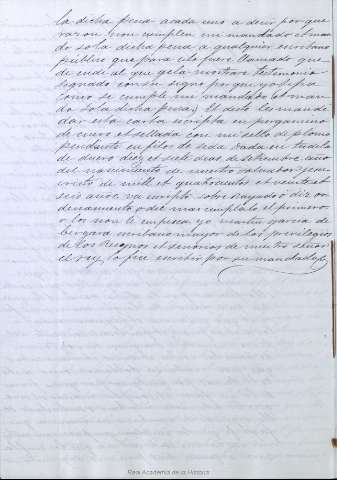 la dicha pena a cada uno a decir por que
razon non cumplen mi mandado et man
do so la dicha pena a qualquier escribano
publico que para esto fuere llamado que
de ende al que gela mostrare testimonio
signado con su signo por que yo sepa
como se cumple mi mandado et man
do so la dicha pena, Et desto les mande
dar esta carta escripta en pergamino
de cuero et sellada con mi sello de plomo
pendiente en filos de seda dada en tudela
de duero diez et siete dias de setiembre año
del nascimiento de nuestro salvador jesu
cristo de mill et quatrocientos et veinte et
seis años va escripto sobre raydo o diz or
denamiento o dec mas cumplalo el primero
o los non le empesca yo martin garcia de
bergara escribano mayor de los previlegios
de los Reegnos et señorios de nuestro señor
el rey lo fise escribir por su mandado
Real Academia de la Historia